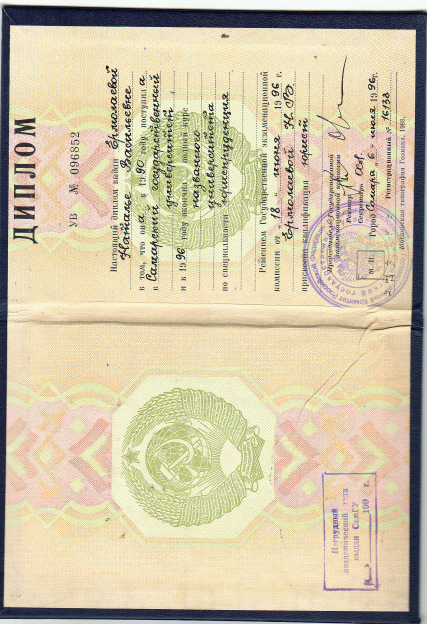 ДИПЛОМ
УВ № 096852
Настоящий диплом выдан Ермолаевой
Наталье Васильевне
в том, что она в 1990 году поступила в
Самарский государственный
университет
и в 1996 году окончила полный курс
названного
университета
по специальности юриспруденция
Решением Государственной экзаменационной
комиссии от "18" июня 1996 г.
Ермолаевой Н.В.
присвоена квалификация юрист
Председатель Государственной
экзаменационной комиссии
Ректор
Секретарь
М. П.
Город Самара 6 июля 1996 г.
Регистрационный № 16138
Московская типография Гознака, 1990.
Нагрудный
академический знак
выдан СамГУ
199 г.